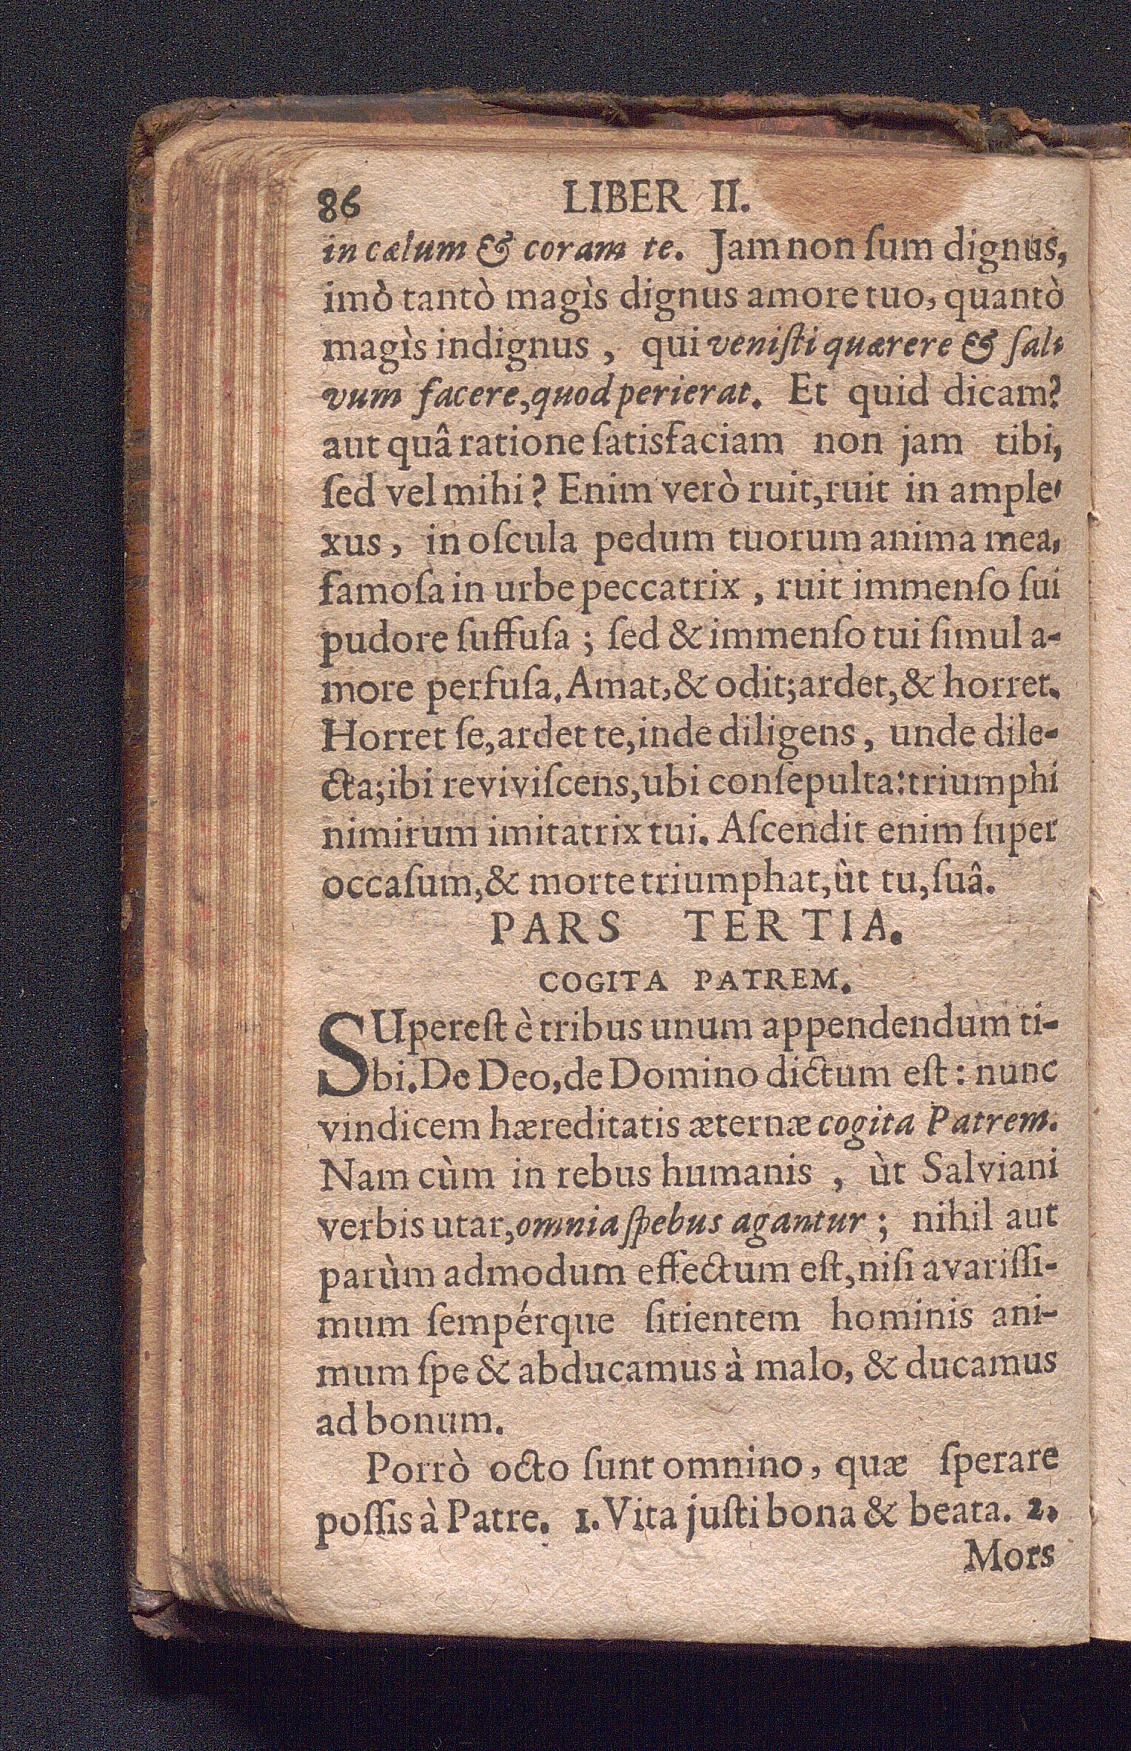 86 LIBER II.
in cælum & coram te. Jam non ſum dignus,
imò tantò magìs dignus amore tuo, quantò
magìs indignus, qui veniſti quærere & ſal-
vum facere, quod perierat. Et quid dicam?
aut quâ ratione ſatisfaciam non jam tibi,
ſed vel mihi? Enim verò ruit, ruit in ample-
xus, in oſcula pedum tuorum anima mea,
famoſa in urbe peccatrix, ruit immenſo ſui
pudore ſuffuſa; ſed & immenſo tui ſimul a-
more perfuſa. Amat, & odit; ardet, & horret.
Horret ſe, ardet te, inde diligens, unde dile-
cta; ibi reviviſcens, ubi conſepulta: triumphi
nimirum imitatrix tui. Aſcendit enim ſuper
occaſum, & morte triumphat, ùt tu, ſuâ.
PARS TERTIA.
COGITA PATREM.
SUpereſt è tribus unum appendendum ti-
bi. De Deo, de Domino dictum eſt: nunc
vindicem hæreditatis æternæ cogita Patrem.
Nam cùm in rebus humanis, ùt Salviani
verbis utar, omnia ſpebus agantur; nihil aut
parùm admodum effectum eſt, niſi avariſſi-
mum ſempérque ſitientem hominis ani-
mum ſpe & abducamus à malo, & ducamus
ad bonum.
Porrò octo ſunt omnino, quæ ſperare
poſſis à Patre. 1. Vita juſti bona & beata. 2.
Mors